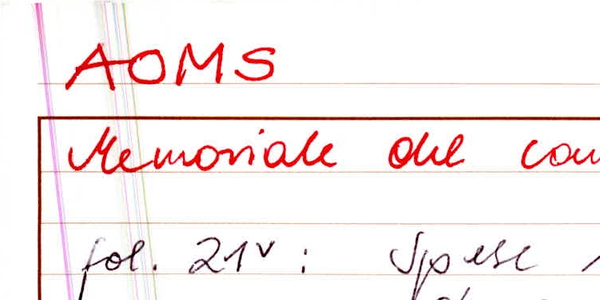 AOMS
Memoriale del
fol. 21v : Spese